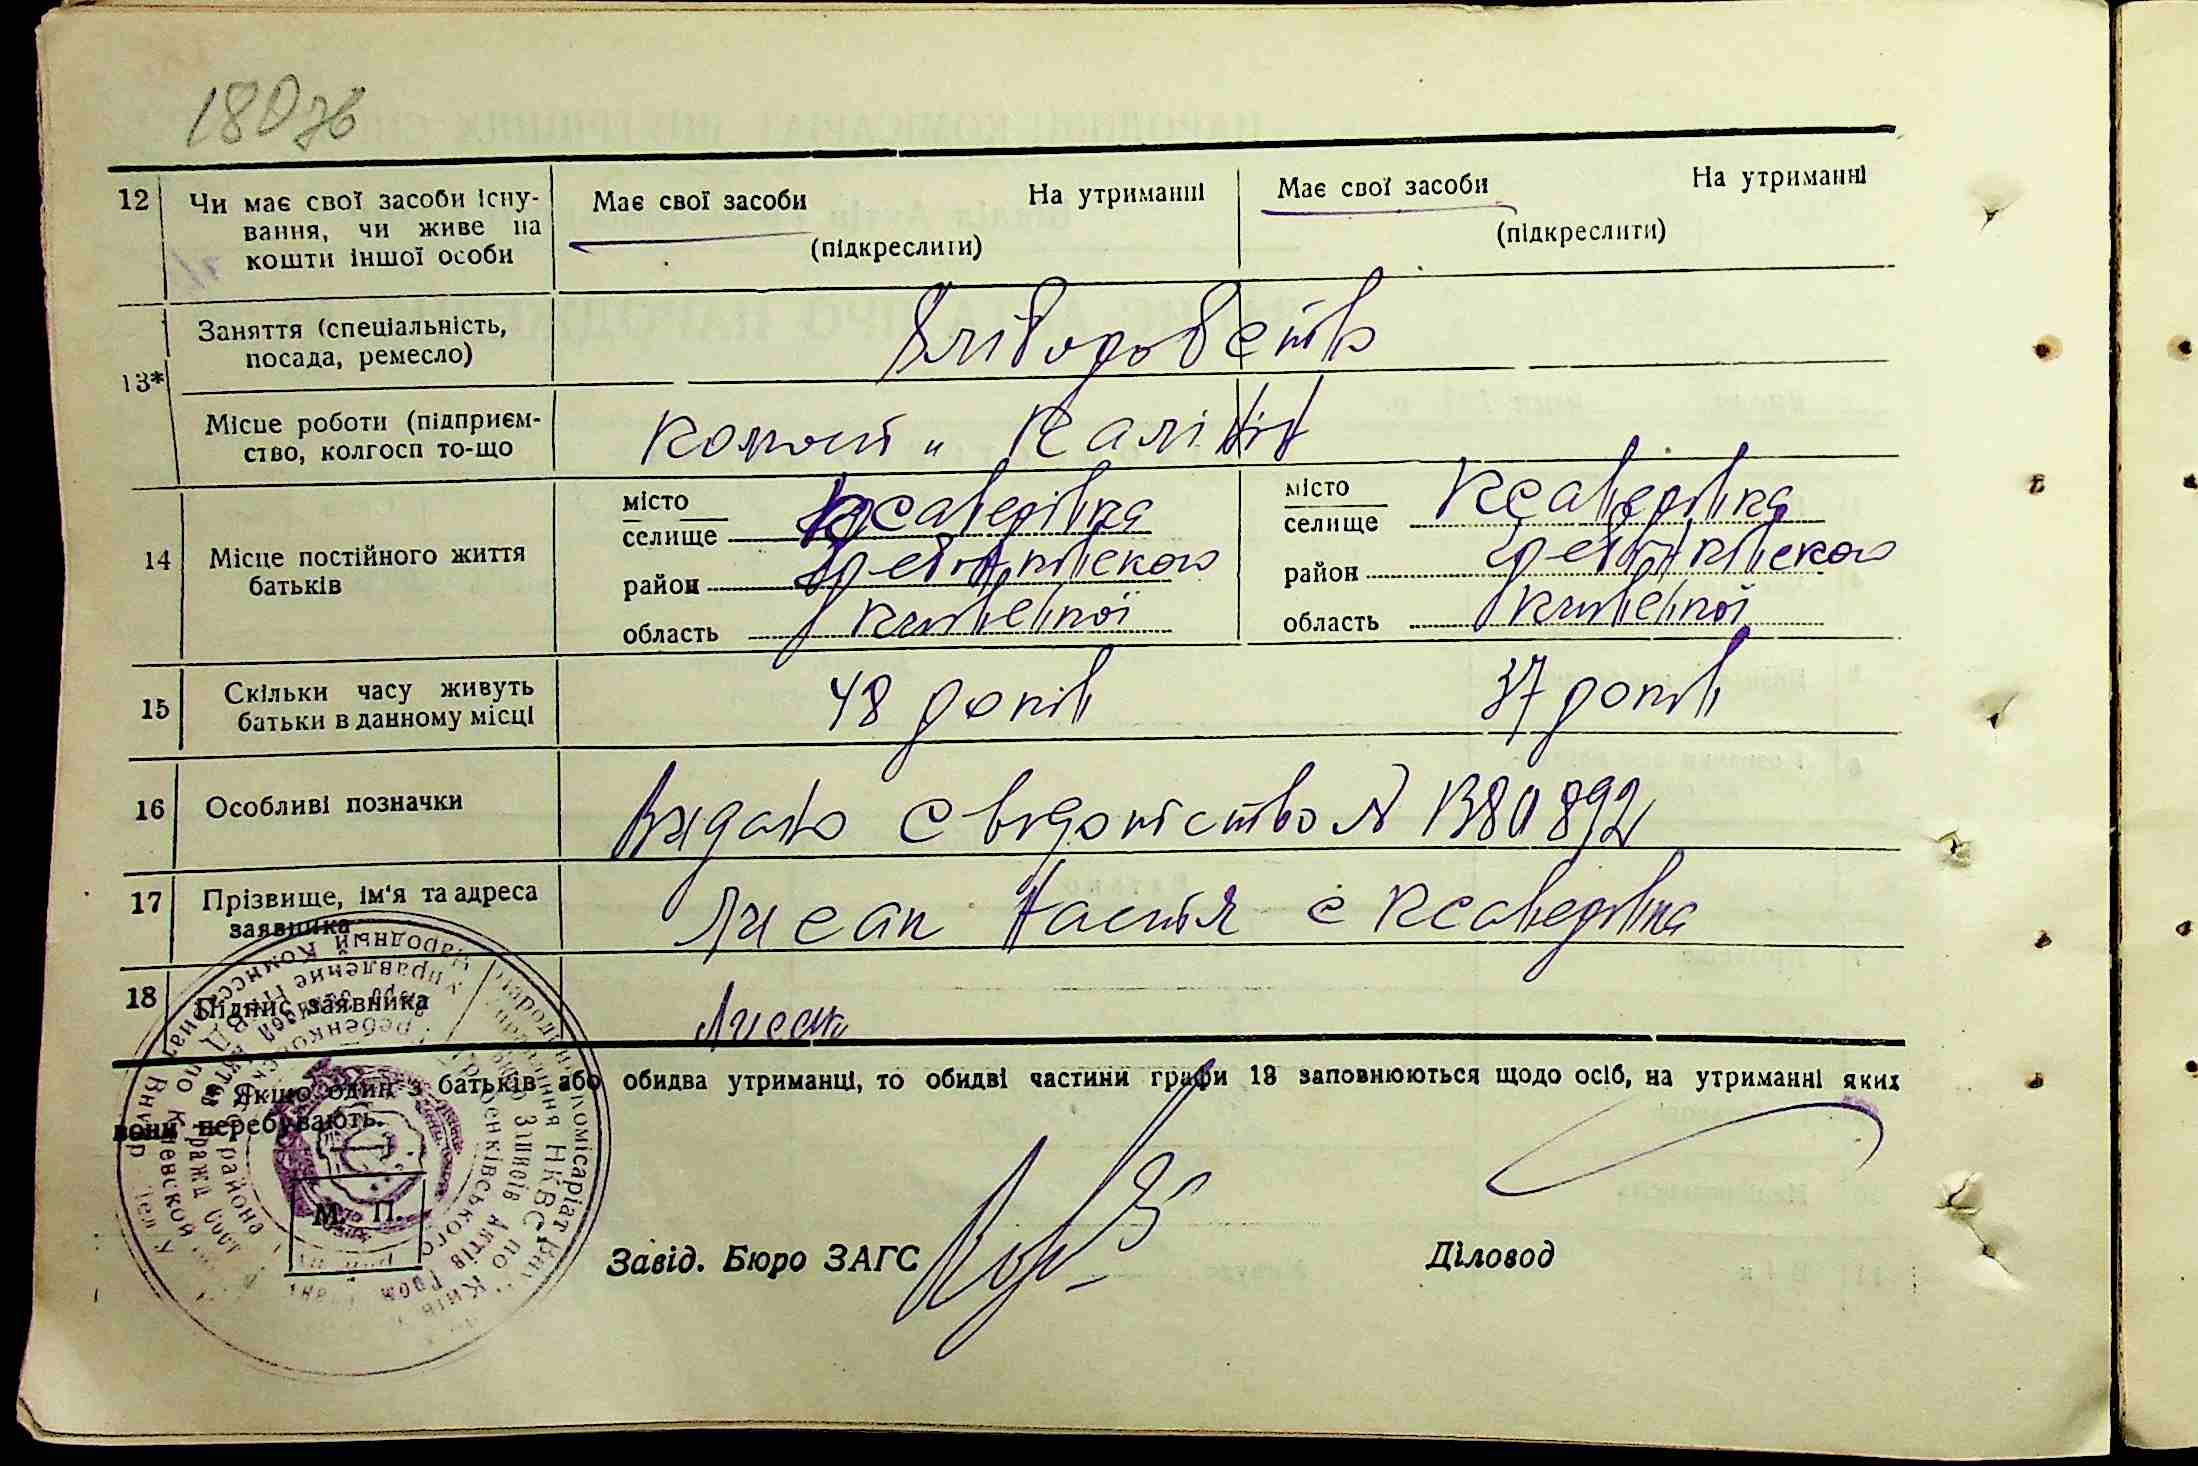 180 зв
12 Чи має свої засоби існу- Має свої засоби На утриманні Має свої засоби На утриманні
вання, чи живе на (підкреслити) (підкреслити)
кошти іншої особи
Заняття (спеціальність, Хліборобство
посада, ремесло)
13*
Місце роботи (підприєм- колгосп „ Калінін
ство, колгосп то-що
місто Ксаверівка місто Ксаверівка
селище селище
14 Місце постійного життя район Гребінківского район Гребінківского
батьків
область Київської область Київської
15 Скільки часу живуть 48 років 37 років
батьки в данному місці
16 Особливі позначки Видано свидоцтство № 1380892
17 Прізвище, ім'я та адреса Лисак Настя с Ксаверівка
заявника
18 Підпис заявника Лисак
Якщо один з батьків або обидва утриманці, то обидві частини графи 13 заповнюються щодо осіб, на утриманні яких
вони перебувають.
М. П.
Завід. Бюро ЗАГС Діловод